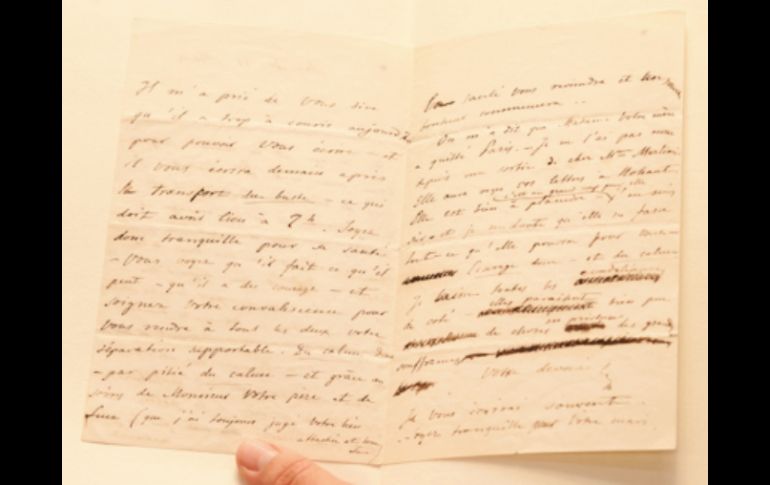 Il m'a prié de vous dire
qu'il a trop à courir aujourd'hui
pour pouvoir vous écrire - et
il vous écrira demain après
le transport du buste - ce qui
doit avoir lieu à 7 h. Soyez
donc tranquille pour sa santé
- Vous voyez qu'il fait ce qu'il
peut - qu'il a du courage - et
soignez votre convalescence pour
vous rendre à tous les deux votre
séparation supportable. Du calme
- par pitié du calme - et grâce aux
soins de Monsieur votre père et de
(que j'ai toujours jugé votre bien
santé vous reviendra et
bonheur commencera ..
On m'a dit que Madame votre mère
a quitté Paris - je ne l'ai pas
depuis sa sortie de chez Mme
Elle aura reçu vos lettres à
Elle est bien à plaindre -
et je ne doute qu'elle ne fasse
tout ce qu'elle pourra pour
Courage donc - et du calme
Je laisse toutes les
de côté - elles paraîtraient bien peu
de choses en présence des grandes
souffrances
Votre dévoué
Je vous écrirai souvent.
- soyez tranquille pour votre mari